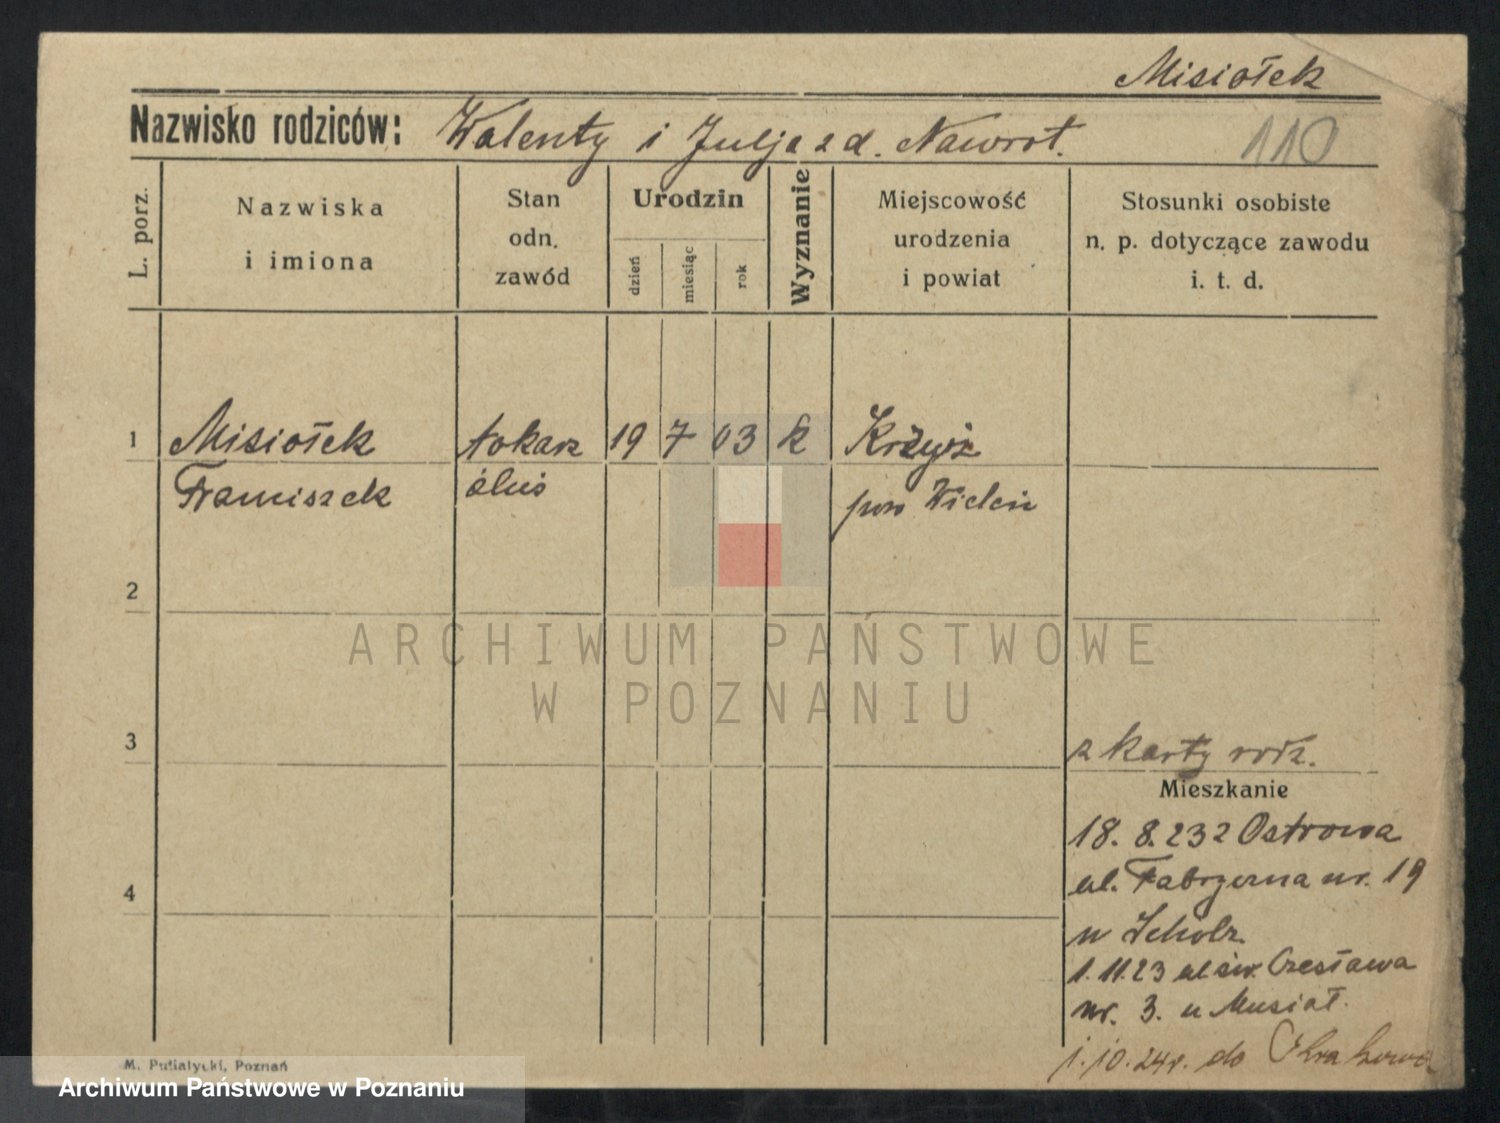 Misiołek
Nazwisko rodziców: Walenty i Julja z d. Nawrot.
110
L. porz.
Nazwiska
i imiona
Stan
odn.
zawód
Urodzin
dzień
miesiąc
rok
Wyznanie
Miejscowość
urodzenia
i powiat
Stosunki osobiste
n. p. dotyczące zawodu
i. t. d.
1 Misiołek tokarz 19 7 03 k Krzyż
Franciszek pow Wieleń
2
ARCHIWUM PAŃSTWOWE
W POZNANIU
3
z karty rodz.
Mieszkanie
18. 8. 23 z Ostrowa
4
ul. Fabryczna nr. 19
u Scholz
1.11.23 ul św. Czesława
nr. 3. u Musiał.
1.10.24r. do
M. Putiatycki, Poznań
Archiwum Państwowe w Poznaniu